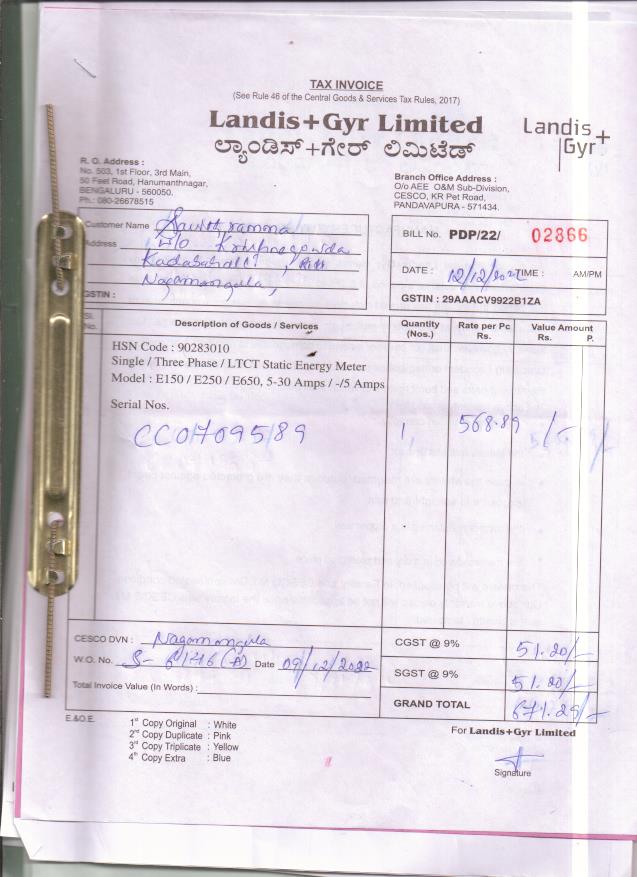 TAX INVOICE
(See Rule 46 of the Central Goods & Services Tax Rules, 2017)
Landis+Gyr Limited
ಲ್ಯಾಂಡಿಸ್+ಗೇರ್ ಲಿಮಿಟೆಡ್
Landis+
Gyr
R. O. Address :
No. 503, 1st Floor, 3rd Main,
50 Feet Road, Hanumanthnagar,
BENGALURU - 560050.
Ph.: 080-26678515
Branch Office Address :
O/o AEE O&M Sub-Division,
CESCO, KR Pet Road,
PANDAVAPURA - 571434.
Customer Name
Address W/o Krishnegowda
Kadabahalli,
Nagamangala,
GSTIN :
BILL No. PDP/22/ 02866
DATE : 12/12/2022 TIME : AM/PM
GSTIN : 29AAACV9922B1ZA
Sl. No. Description of Goods / Services Quantity (Nos.) Rate per Pc Rs. Value Amount Rs. P.
HSN Code : 90283010
Single / Three Phase / LTCT Static Energy Meter
Model : E150 / E250 / E650, 5-30 Amps / -/5 Amps
Serial Nos.
CC0709589 1, 568.89
CESCO DVN : Nagamangala
W.O. No. S- 61746(A) Date 09/12/2022
Total Invoice Value (In Words) :
CGST @ 9% 51.20/-
SGST @ 9% 51.20/-
GRAND TOTAL 671.29/-
E.&O.E.
1st Copy Original : White
2nd Copy Duplicate : Pink
3rd Copy Triplicate : Yellow
4th Copy Extra : Blue
For Landis+Gyr Limited
Signature